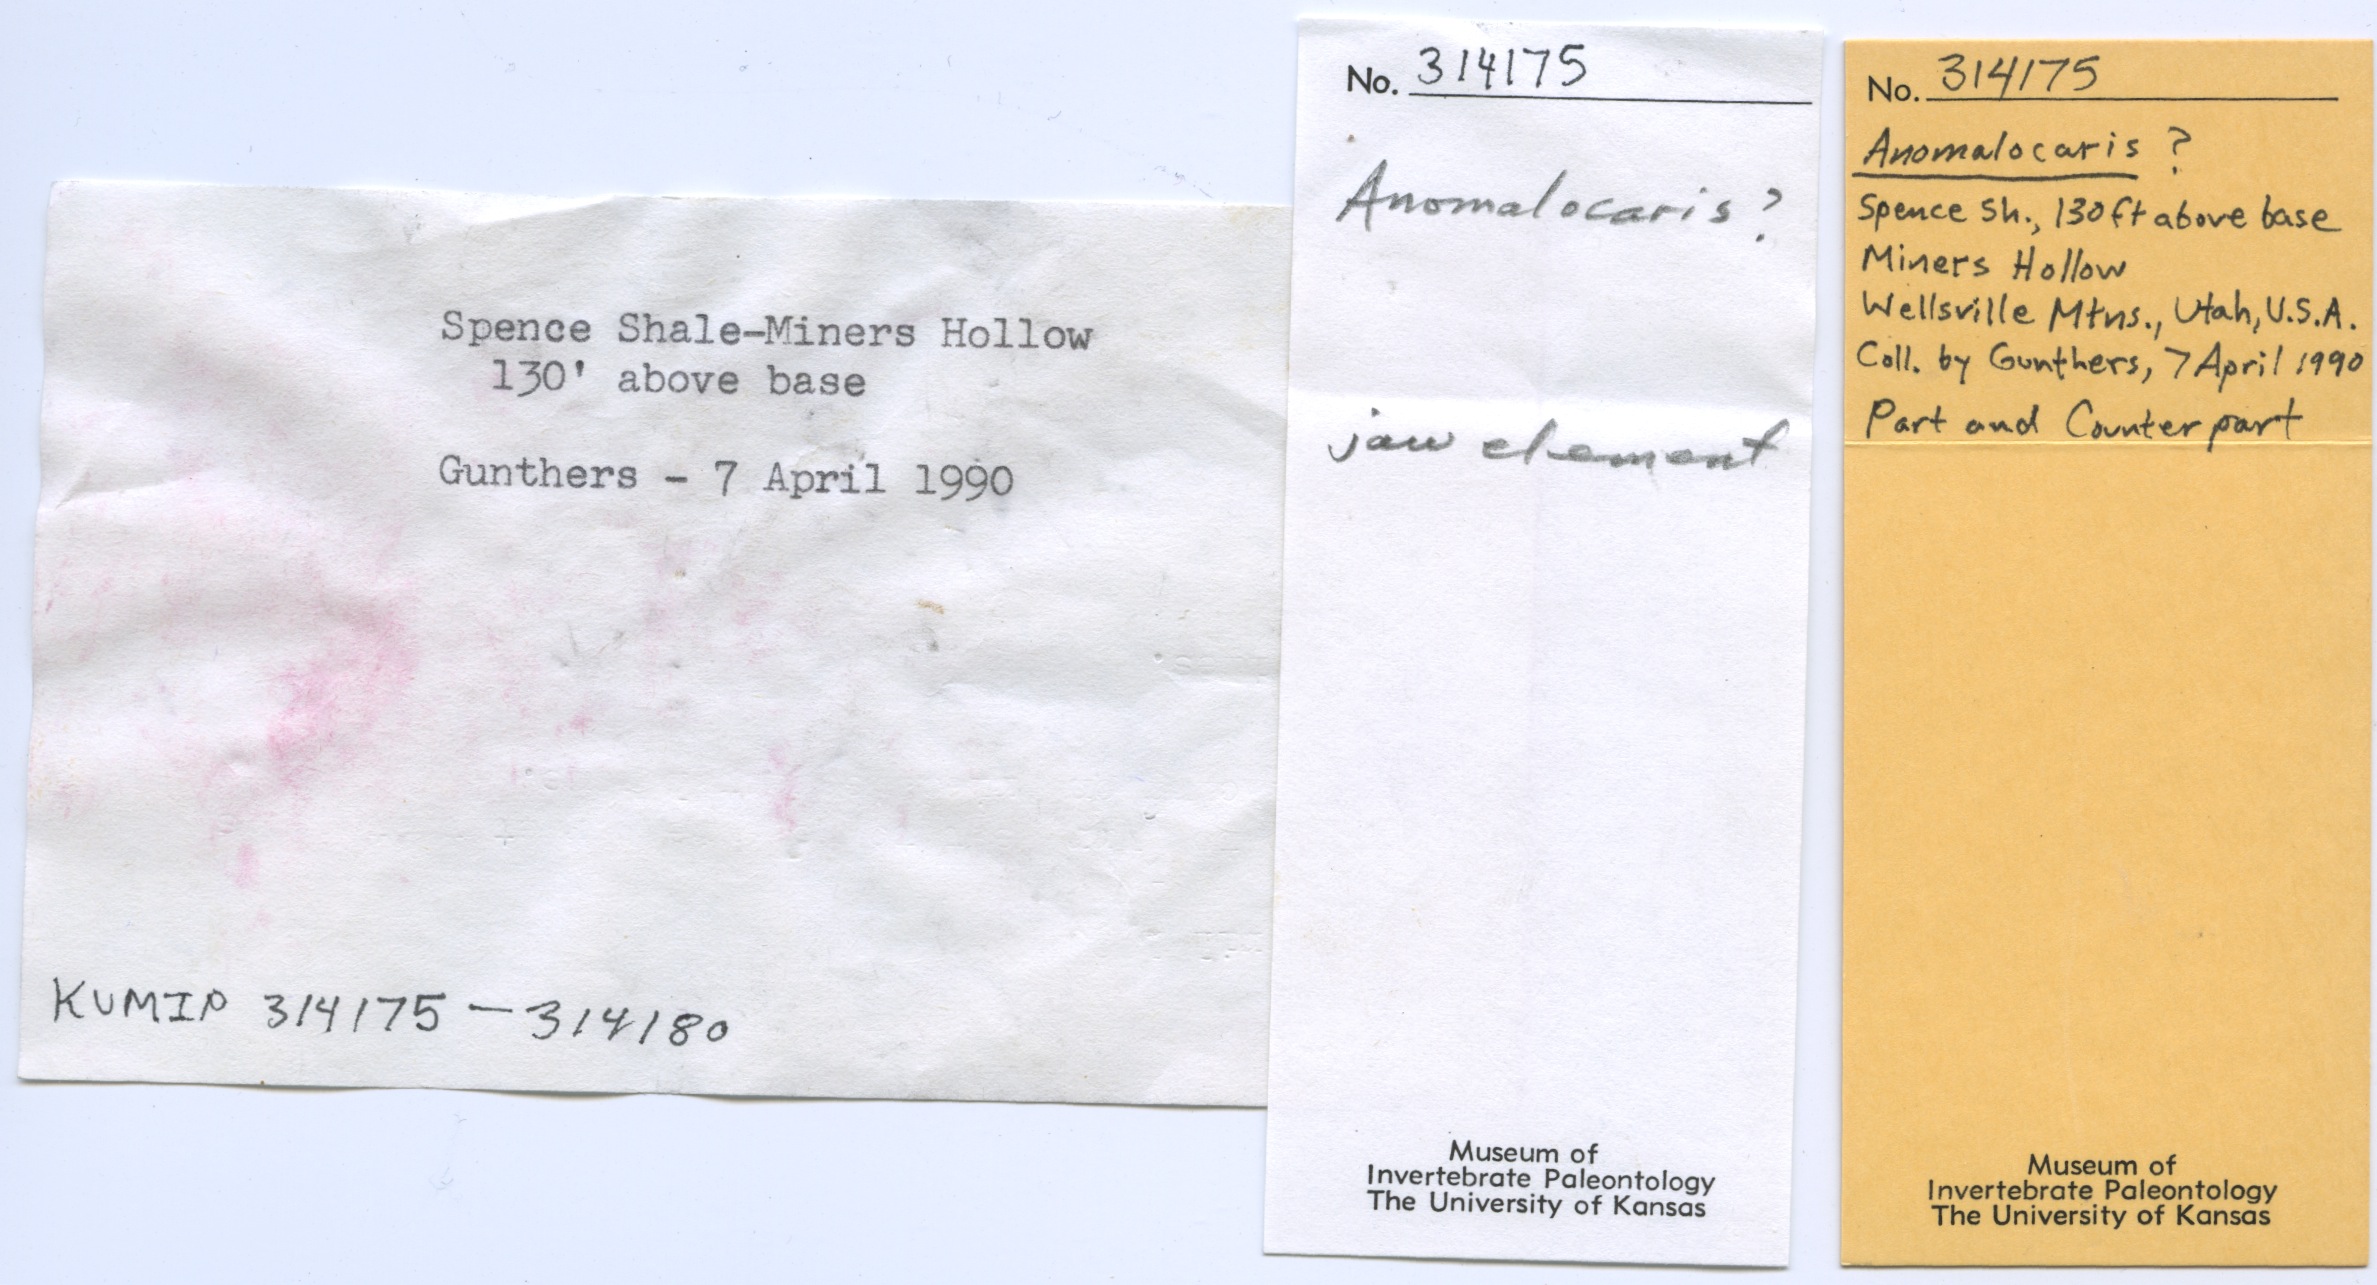 Spence Shale-Miners Hollow
130' above base
Gunthers - 7 April 1990
KUMIP 314175 – 314180
No. 314175
Anomalocaris?
jaw element
Museum of
Invertebrate Paleontology
The University of Kansas
No. 314175
Anomalocaris ?
Spence Sh., 130ft above base
Miners Hollow
Wellsville Mtns., Utah, U.S.A.
Coll. by Gunthers, 7 April 1990
Part and Counterpart
Museum of
Invertebrate Paleontology
The University of Kansas